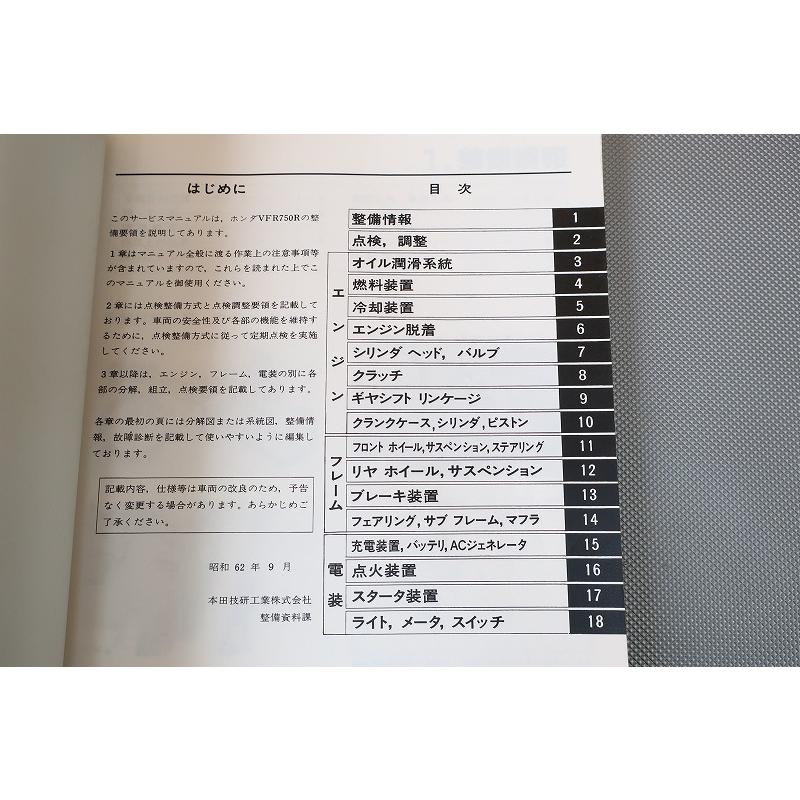 はじめに
このサービスマニュアルは，ホンダVFR750Rの整
備要領を説明してあります。
1章はマニュアル全般に渡る作業上の注意事項等
が含まれていますので，これらを読まれた上でこ
のマニュアルを御使用ください。
2章には点検整備方式と点検調整要領を記載して
おります。車両の安全性及び各部の機能を維持す
るために，点検整備方式に従って定期点検を実施
してください。
3章以降は，エンジン，フレーム，電装の別に各
部の分解，組立，点検要領を記載してあります。
各章の最初の頁には分解図または系統図，整備情
報，故障診断を記載して使いやすいように編集し
ております。
記載内容，仕様等は車両の改良のため，予告
なく変更する場合があります。あらかじめご
了承ください。
昭和 62 年 9 月
本田技研工業株式会社
整備資料課
目 次
整備情報 1
点検，調整 2
エンジン
オイル潤滑系統 3
燃料装置 4
冷却装置 5
エンジン脱着 6
シリンダ ヘッド，バルブ 7
クラッチ 8
ギヤシフト リンケージ 9
クランクケース,シリンダ,ピストン 10
フレーム
フロント ホイール,サスペンション,ステアリング 11
リヤ ホイール,サスペンション 12
ブレーキ装置 13
フェアリング,サブ フレーム,マフラ 14
電装
充電装置,バッテリ,ACジェネレータ 15
点火装置 16
スタータ装置 17
ライト，メータ，スイッチ 18